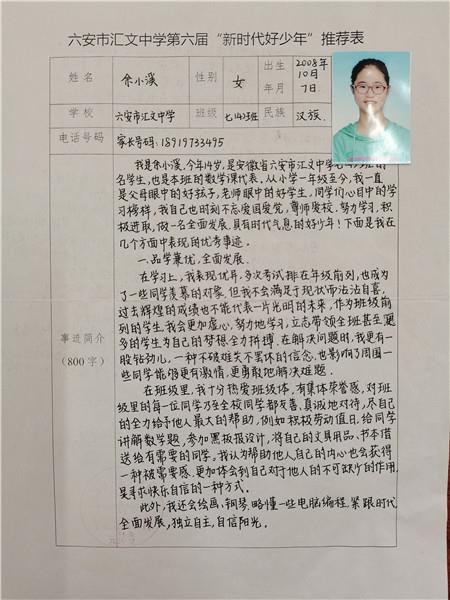 六安市汇文中学第六届“新时代好少年”推荐表
姓名 余小溪 性别 女 出生年月 2008年10月7日.
学校 六安市汇文中学 班级 七(14)班 民族 汉族.
电话号码 家长号码:18919733495
事迹简介
(800字)
我是余小溪,今年14岁,是安徽省六安市汇文中学七
名学生,也是本班的数学课代表,从小学一年级至今,我一直
是父母眼中的好孩子,老师眼中的好学生,同学们心目中的学
习榜样,我自己也时刻不忘爱国爱党,尊师爱校,努力学习,积
极进取,做一名全面发展,具有时代气息的好少年!下面是我在
几个方面中表现的优秀事迹。
一.品学兼优,全面发展.
在学习上,我表现优异,多次考试排在年级前列,也成为
了一些同学羡慕的对象,但我不会满足于现状而沾沾自喜,
过去辉煌的成绩也不能代表一片光明的未来,作为班级前
列的学生,我会更加虚心,努力地学习,立志带领全班甚至更
多的学生为自己的梦想全力拼搏.在解决问题时,我更有一
股钻劲儿,一种不破难关不罢休的信念,也影响了周围一
些同学能够更有激情,更勇敢地解决难题.
在班级里,我十分热爱班级体,有集体荣誉感,对班
级里的每一位同学乃至全校同学都友善、真诚地对待,尽自己
的全力给予他人最大的帮助,例如积极劳动值日,给同学
讲解数学题,参加黑板报设计,将自己的文具用品、书本借
送给有需要的同学,我认为帮助他人自己的内心也会获得
一种被需要感.更加体会到自己对于他人的不可缺少的作用,
是寻求快乐自信的一种方式.
此外,我还会绘画、钢琴、略懂一些电脑编程,紧跟时代
全面发展,独立自主,自信阳光。